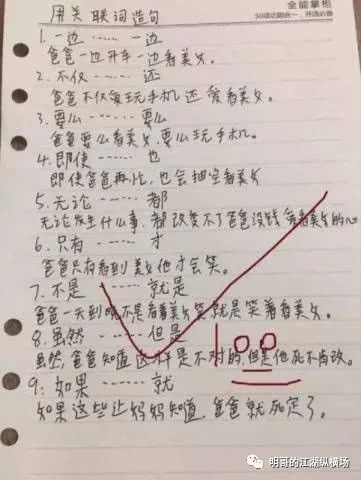 全能掌柜
50项功能合一，开店必备
用关联词造句
1.一边……一边
爸爸一边开车一边看美女。
2.不仅……还
爸爸不仅爱玩手机还爱看美女。
3.要么……要么
爸爸要么看美女,要么玩手机。
4.即使……也
即使爸爸再忙,也会抽空看美女
5.无论……都
无论发生什么事,都改变不了爸爸没钱 爱看美女的心
6.只有……才
爸爸只有看到美女他才会笑。
7.不是……就是
爸爸一天到晚不是看着美女笑就是笑着看美女。
8.虽然……但是
虽然,爸爸知道这样是不对的,但是他死不肯改。
100
9:如果……就
如果这些让妈妈知道,爸爸就死定了。
明哥的江湖纵横场